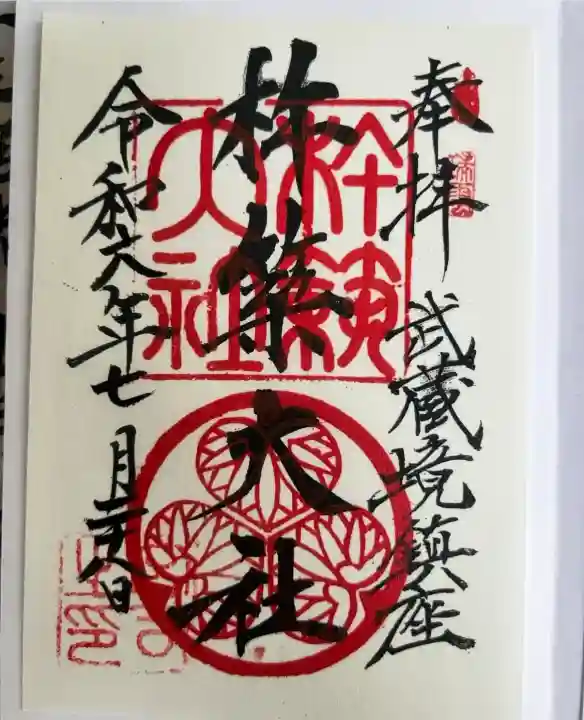 奉拝
武蔵境鎮座
杵築大社
令和六年七月廿八日
杵築
大社